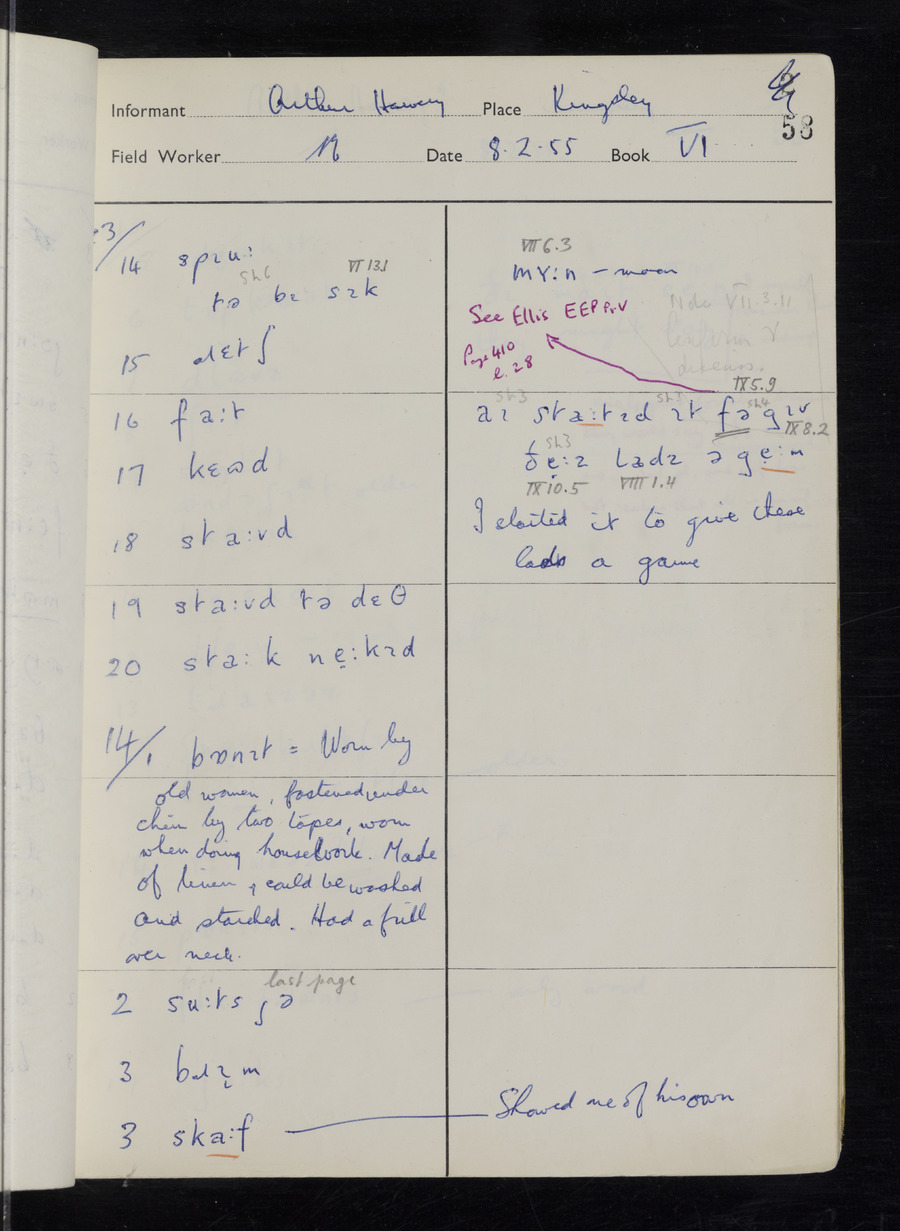 Informant Arthur Place Kingsley
58
Field Worker Date 8.2.55 Book VI
14 spɪu:
sh6 VI 13.1
tə bɪ sɪk
15 dɛtʃ
16 fa:t
17 kɛɷd
18 sta:vd
19 sta:vd tə dɛθ
20 sta:k nẹ:kɪd
14/1 bɒnɪt = Worn by
old women, fastened under
chin by two tapes, worn
when doing housework. Made
of linen, could be washed
and starched. Had a frill
over neck.
last page
2 su:ts
3 ɪm
3 ska:f
VII 6.3
mʏ:n – moon
See Ellis EEP Pt. V
Page 410
l. 28
Note VII.3.11
IX 5.9
sh3 sh3 sh4
aɪ sta:tɪd ɪt fə gɪv
IX 8.2
sh3
ðẹ:z ladz ə gẹ:m
IX 10.5 VIII 1.4
I started it to give these
lads a game
Showed me of his own